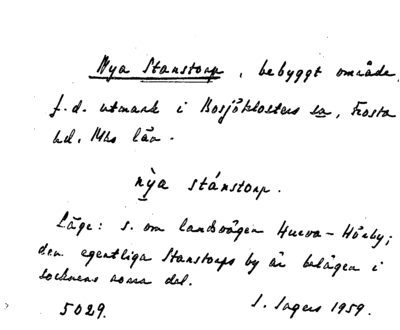 Nya Stanstorp, bebyggt område,
f.d. utmark i Bosjöklosters sn, Frosta
hd. Mhs län.
nỳa stánstorp.
Läge: s. om landsvägen Hurva-Hörby;
den egentliga Stanstorps by är belägen i
socknens norra del.
5029. I. Ingers 1959.